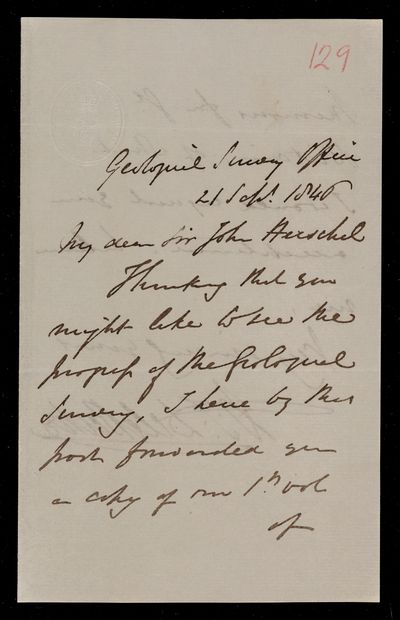 129
Geological Survey Office
21 Sept. 1846
My dear Sir John Herschel
Thinking that you
might like to see the
progress of the Geological
Survey, I have by this
post forwarded you
a copy of our 1st vol
of